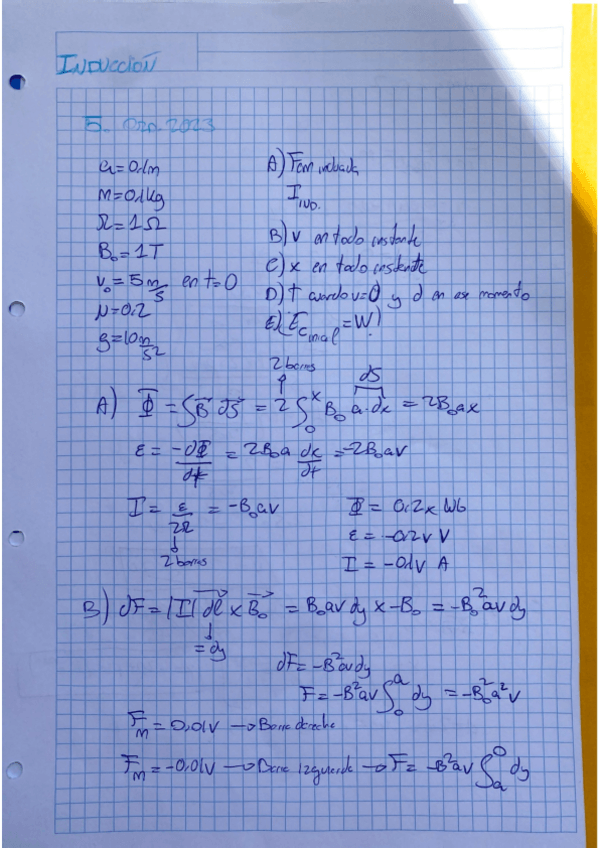 INDUCCIÓN
5. ORD. 2023
a = 0.1m
m = 0.1kg
Ω = 1Ω
B₀ = 1T
v₀ = 5 m/s en t=0
μ = 0.2
g = 10 m/s²
A) Fem inducida
I IND.
B) v en todo instante
C) x en todo instante
D) t cuando v=0 y d en ese momento
E) ¿Ec inicial = W?
2 barras dS
A) Φ = ∫B⃗ dS⃗ = 2∫₀ˣ B₀ a·dx = 2B₀ax
ε = -dΦ/dt = 2B₀a dx/dt = -2B₀av
I = ε/2Ω = -B₀av
2 barras
Φ = 0.2x Wb
ε = -0.2v V
I = -0.1v A
B) dF = |I| dl⃗ x B₀⃗ = B₀av dy x -B₀ = -B₀²av dy
= dy
dF = -B²av dy
F = -B²av ∫₀ᵃ dy = -B₀²a²v
Fm = 0.01v → Barra derecha
Fm = -0.01v → Barra izquierda → F = -B²av ∫ₐ⁰ dy